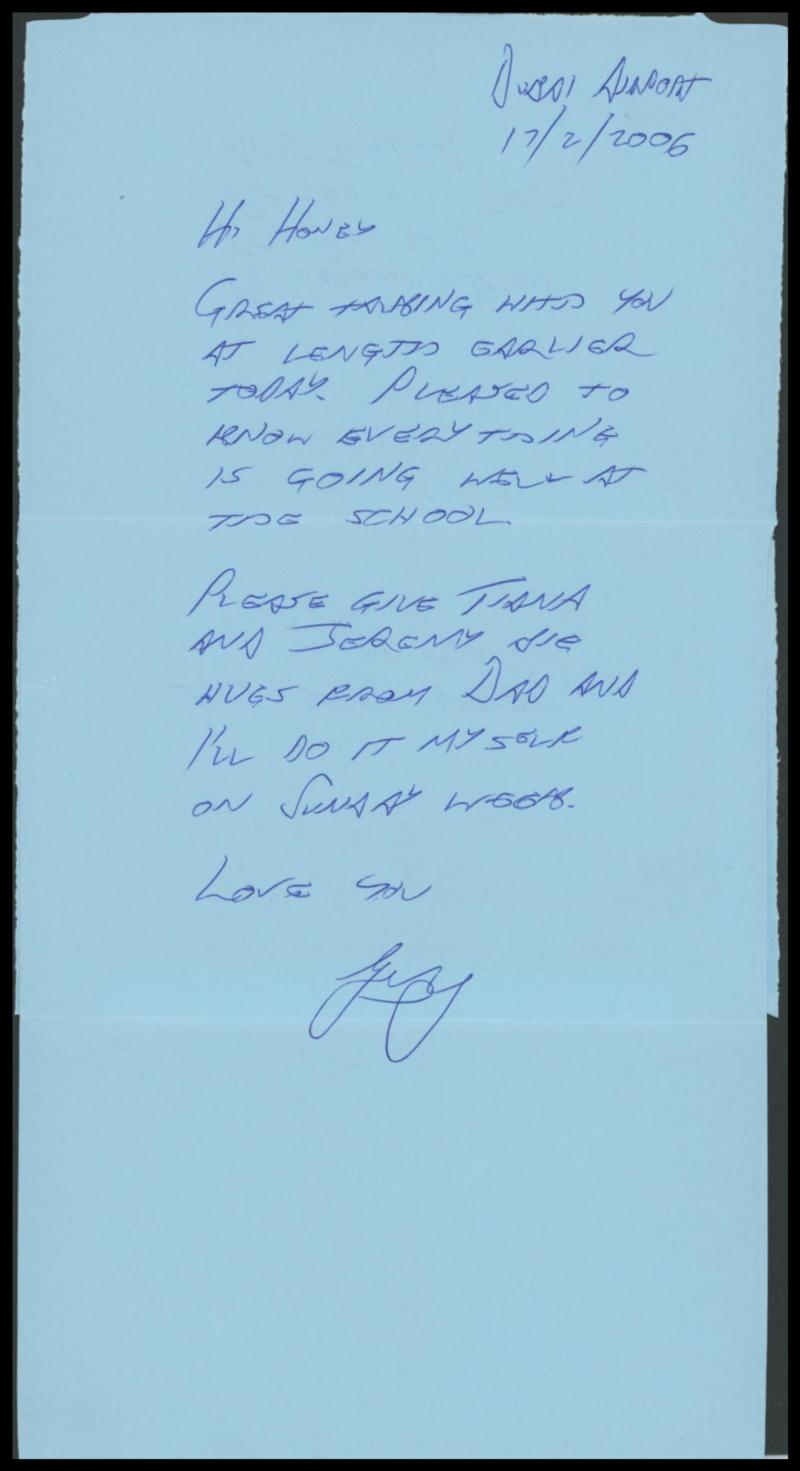 DUBAI AIRPORT
17/2/2006
HI HONEY
GREAT TALKING WITH YOU
AT LENGTH EARLIER
TODAY. PLEASED TO
KNOW EVERYTHING
IS GOING WELL AT
THE SCHOOL.
PLEASE GIVE TIANA
AND JEREMY BIG
HUGS FROM DAD AND
I'LL DO IT MYSELF
ON SUNDAY WEEK.
LOVE YOU